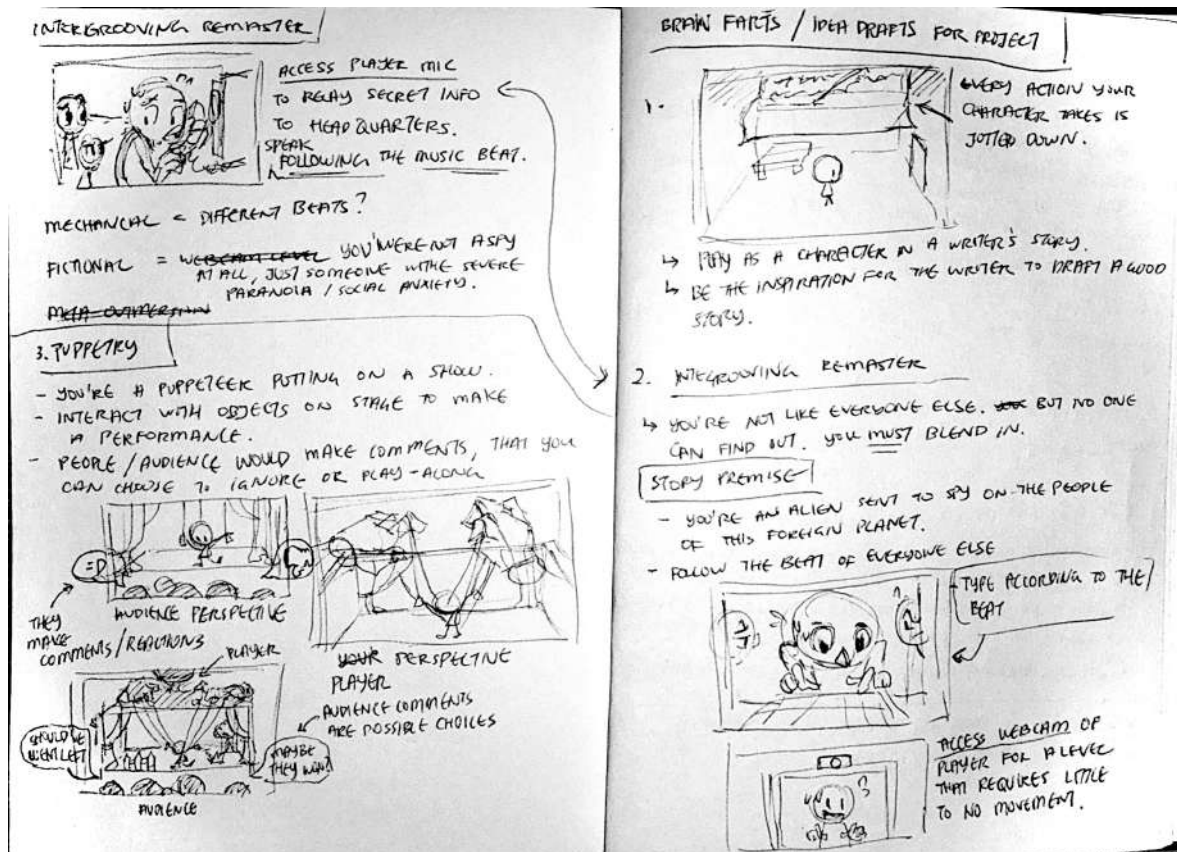 INTERGROOVING REMASTER
ACCESS PLAYER MIC
TO RELAY SECRET INFO
TO HEADQUARTERS.
SPEAK
FOLLOWING THE MUSIC BEAT.
MECHANICAL = DIFFERENT BEATS?
FICTIONAL = WEBCAM LEVEL YOU WERE NOT A SPY
AT ALL, JUST SOMEONE WITHE SEVERE
PARANOIA / SOCIAL ANXIETY.
3. PUPPETRY
- YOU'RE A PUPPETEER PUTTING ON A SHOW.
- INTERACT WITH OBJECTS ON STAGE TO MAKE
A PERFORMANCE.
- PEOPLE/AUDIENCE WOULD MAKE COMMENTS, THAT YOU
CAN CHOOSE TO IGNORE OR PLAY-ALONG
=D
AUDIENCE PERSPECTIVE
THEY
MAKE
COMMENTS/REACTIONS
YOUR PERSPECTIVE
PLAYER
AUDIENCE COMMENTS
ARE POSSIBLE CHOICES
PLAYER
SHOULD'VE
WENT LEFT
MAYBE
THEY
AUDIENCE
BRAIN FARTS / IDEA DRAFTS FOR PROJECT
1.
EVERY ACTION YOUR
CHARACTER TAKES IS
JOTTED DOWN.
↳ PLAY AS A CHARACTER IN A WRITER'S STORY.
↳ BE THE INSPIRATION FOR THE WRITER TO DRAFT A GOOD
STORY.
2. INTEGROOVING REMASTER
↳ YOU'RE NOT LIKE EVERYONE ELSE. BUT NO ONE
CAN FIND OUT. YOU MUST BLEND IN.
STORY PREMISE
- YOU'RE AN ALIEN SENT TO SPY ON THE PEOPLE
OF THIS FOREIGN PLANET.
- FOLLOW THE BEAT OF EVERYONE ELSE
TYPE ACCORDING TO THE
BEAT
ACCESS WEBCAM OF
PLAYER FOR A LEVEL
THAT REQUIRES LITTLE
TO NO MOVEMENT.